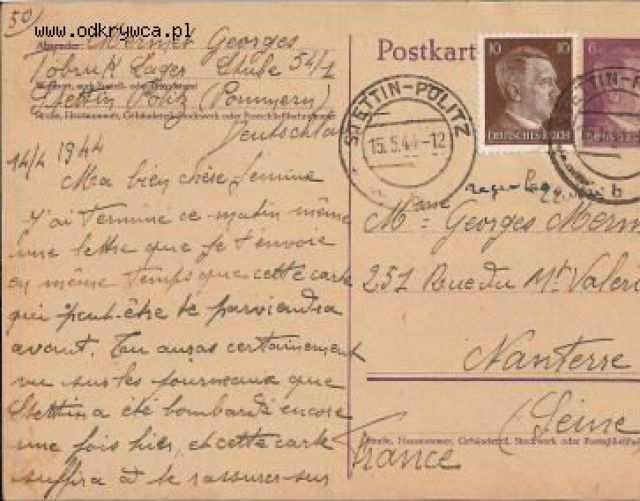 50)
www.odkrywca.pl
Absender: Mermet Georges
Tobruk Lager Stube 54/1
Wohnort, auch Zustell- oder Leitpostamt
Stettin Pölitz (Pommern)
Straße, Hausnummer, Gebäudeteil, Stockwerk oder Postschließfachnummer
Deutschland
14/4 1944
Ma bien chère femme
J'ai terminé ce matin même
une lettre que je t'envoie
en même temps que cette carte
qui peut-être te parviendra
avant. Tu auras certainement
vu sur les journeaux que
Stettin a été bombardé encore
une fois hier, et cette carte
suffira à te rassurer sur
Postkart
10 10
DEUTSCHES REICH
6
STETTIN-PÖLITZ
15.5.44-12
STETTIN-P
Mme Georges Merm
257 Rue du Mt Valéri
Nanterre
(Seine
Straße, Hausnummer, Gebäudeteil, Stockwerk oder Postschließfach
France